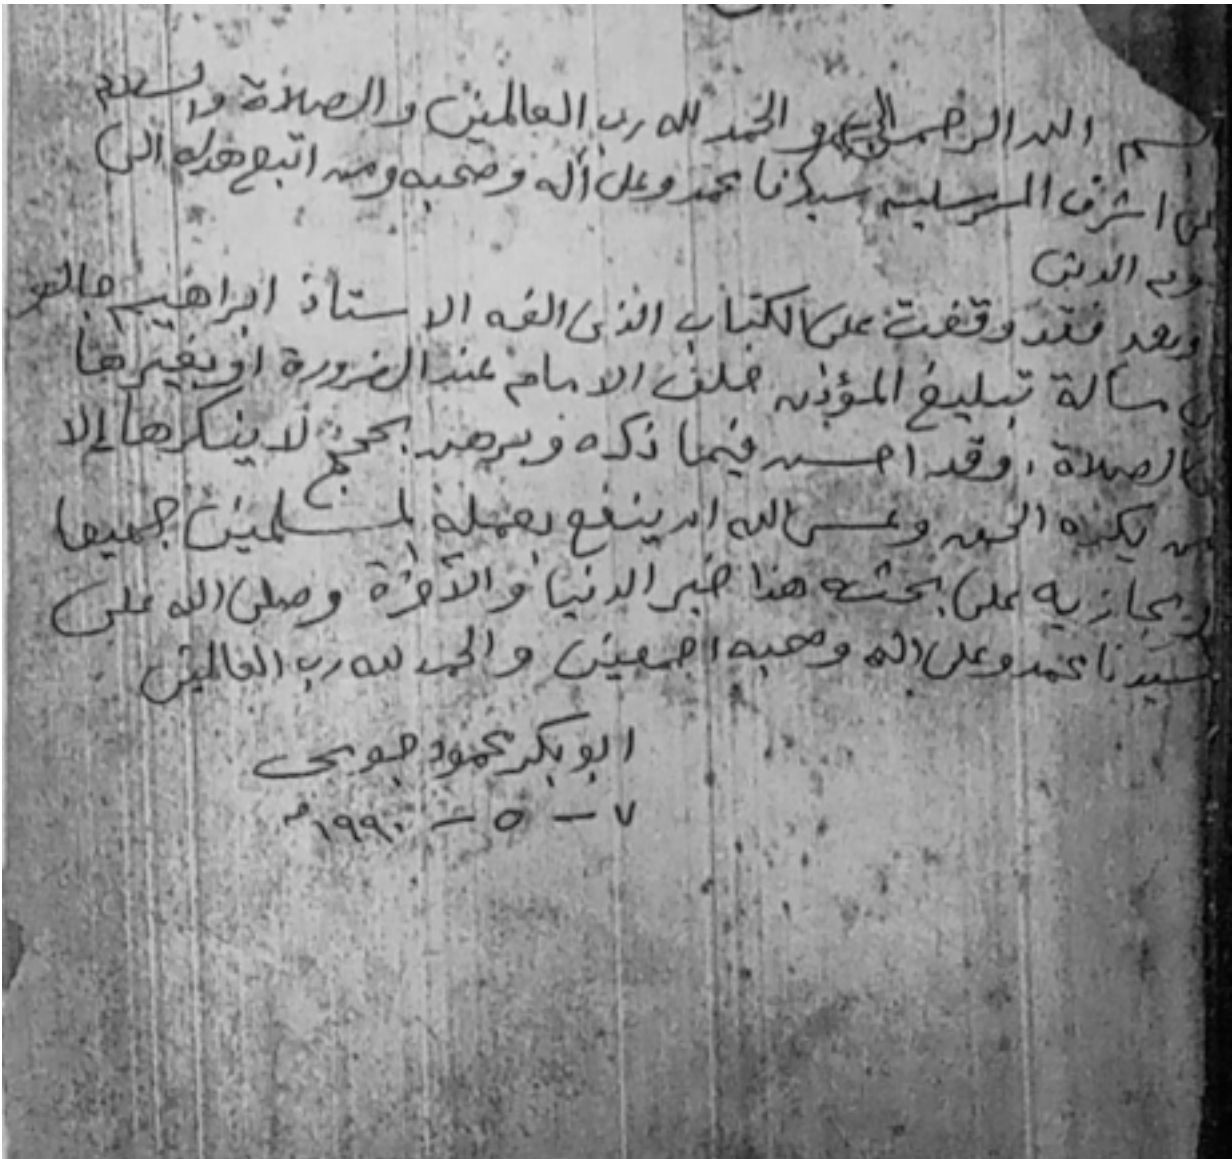 بسم الله الرحمن الرحيم والحمد لله رب العالمين والصلاة والسلام
على اشرف المرسلين سيدنا محمد وعلى أله وصحبه ومن اتبع هداه الى
يوم الدين
وبعد فقد وقفت على الكتاب الذى الفه الاستاذ ابراهيم جالو
فى مسألة تبليغ المؤذن خلف الامام عند الضرورة او بغيرها
فى الصلاة، وقد احسن فيما ذكره وبرهن بحجج لا ينكرها إلا
من يكره الحق وعسى الله ان ينفع بعمله المسلمين جميعا
ويجازيه على بحثه هذا خير الدنيا والآخرة وصلى الله على
سيدنا محمد وعلى اله وصحبه اجمعين والحمد لله رب العالمين
ابوبكر محمود جومى
٧ - ٥ - ١٩٩٠م